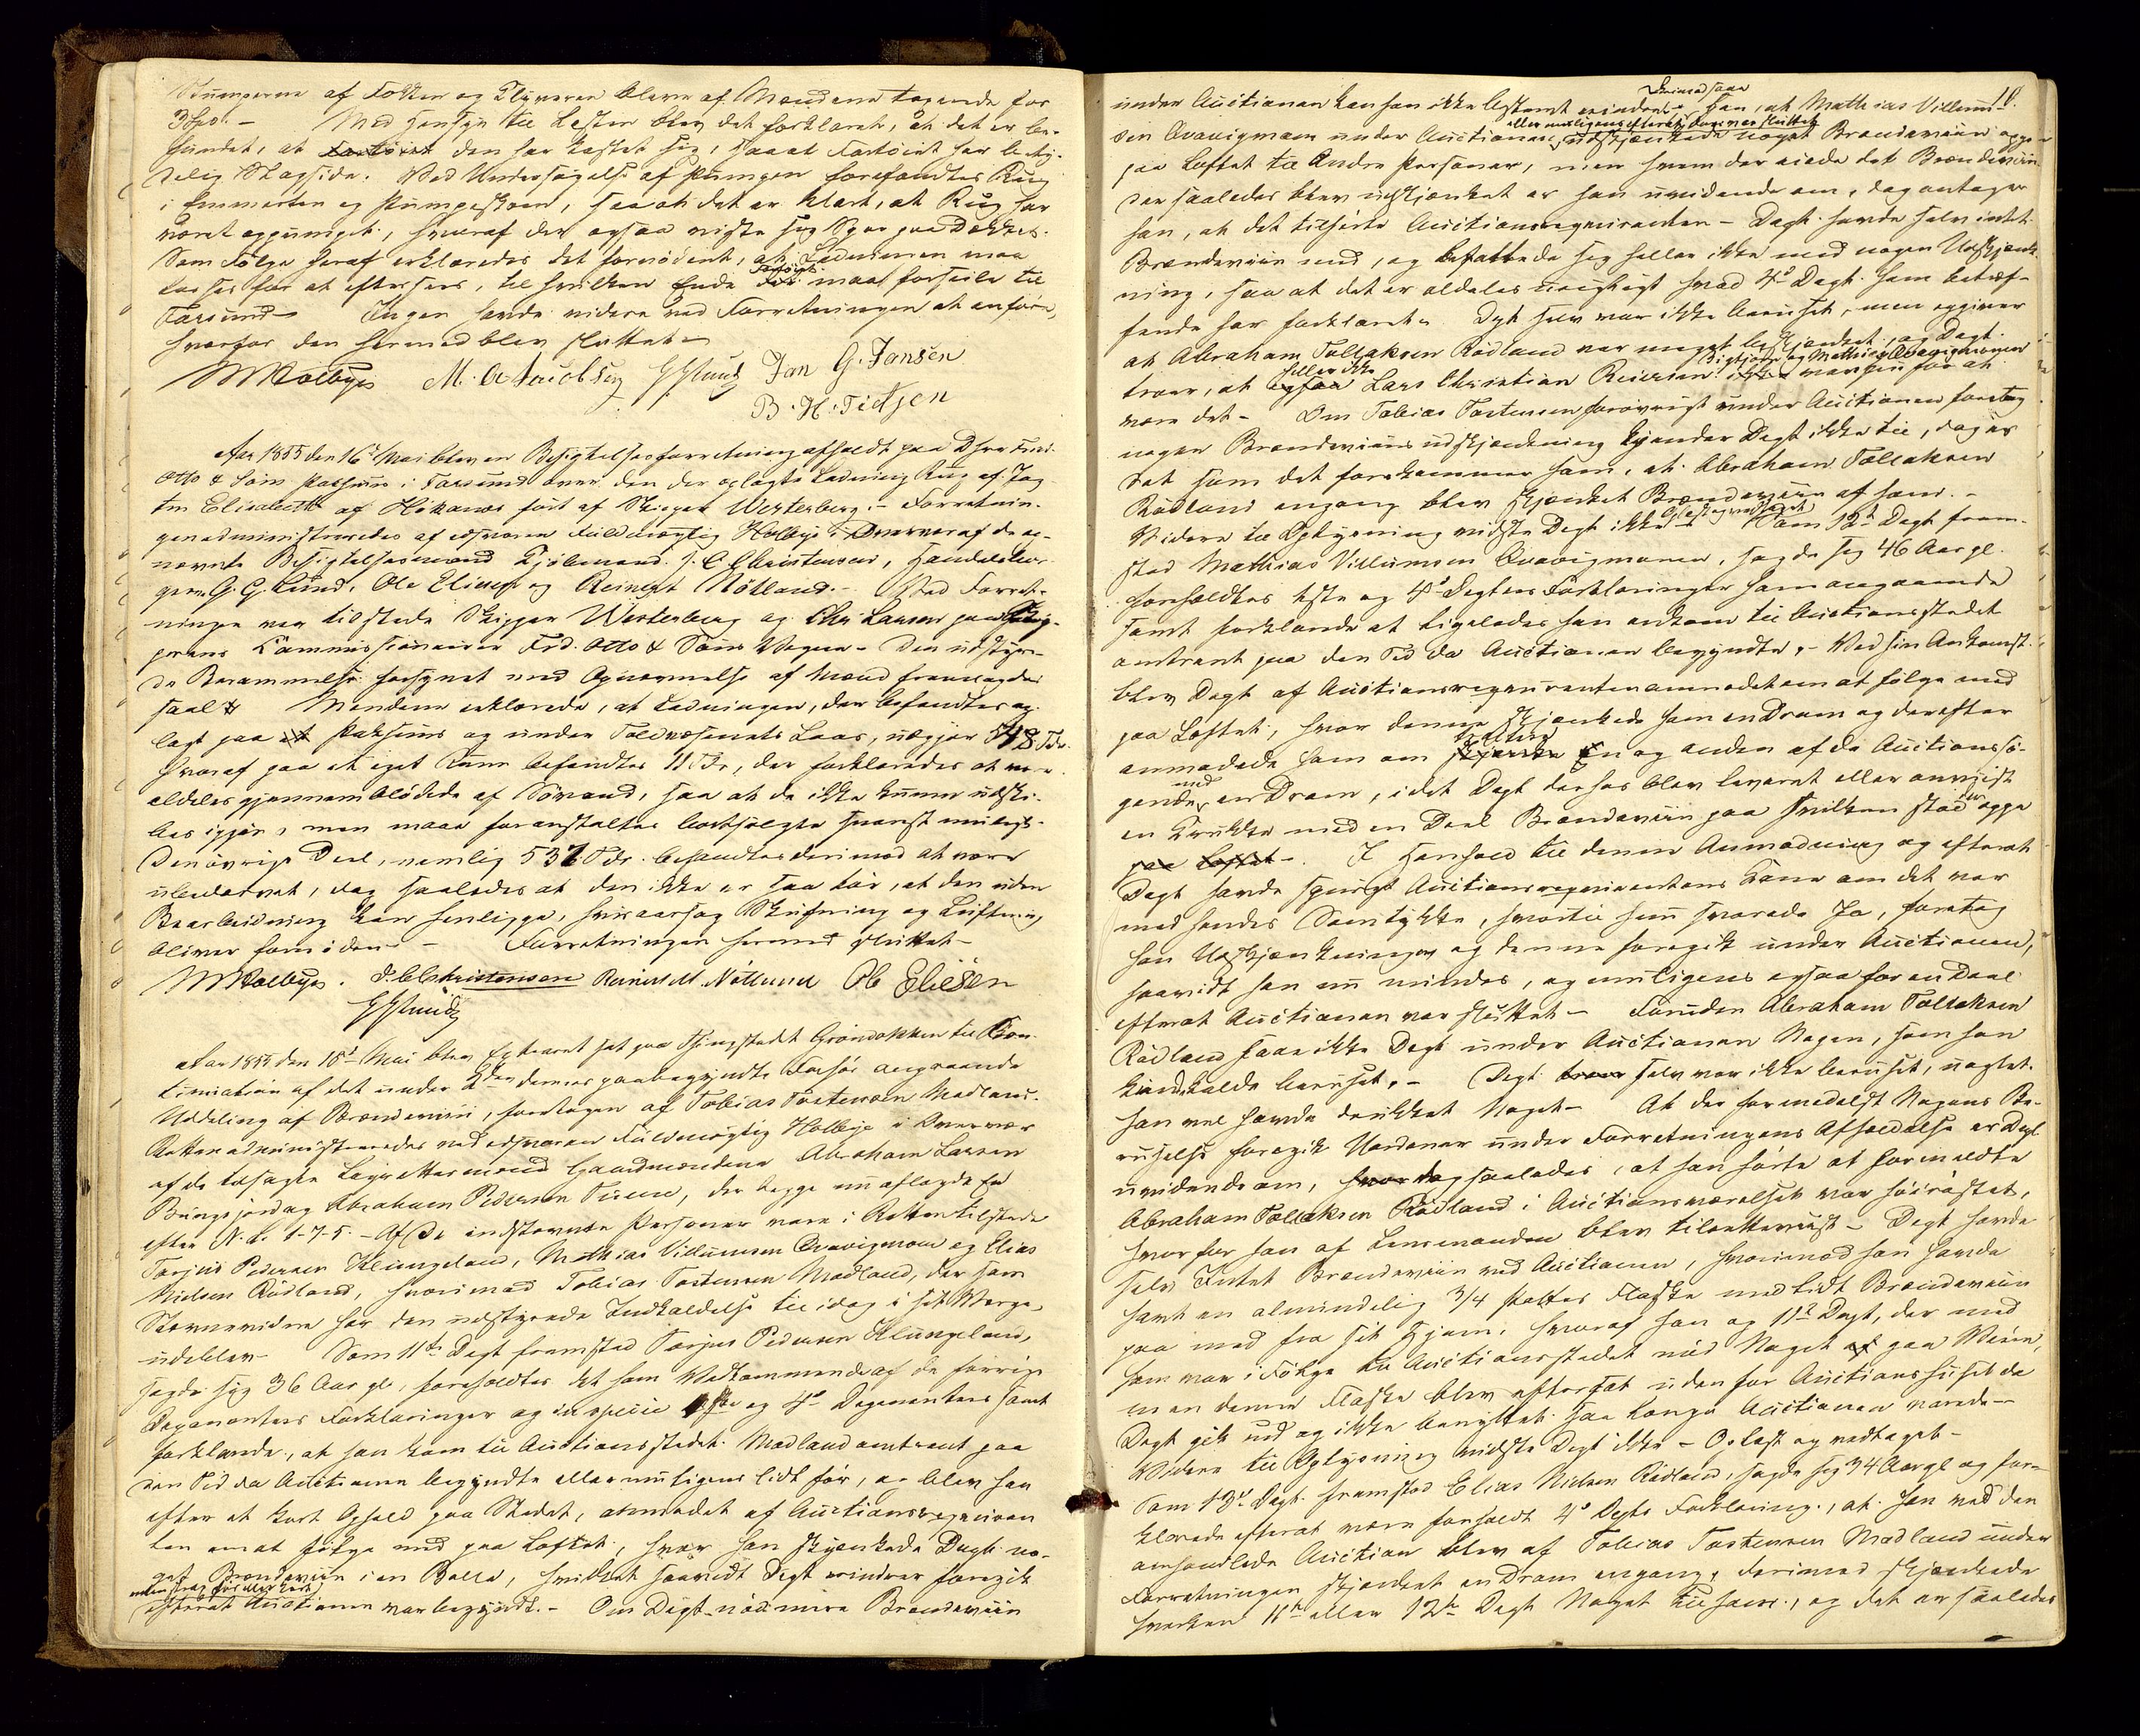 Stumperne af Fokken og Klyveren bleve af Mændene taxerede for
3 Spd. – Med Hensyn til Lasten blev det forklaret, at det er be-
fundet, at den har kastet sig, saa at Fartøiet har betyd-
elig Slagside. Ved Undersøgelse af Pumpen forefandtes Rug
i Emmerten og Pumpeskoen, saa at det er klart, at Rug har
været oppumpet, hvoraf der ogsaa viste sig Spor paa Dækket.
Som Følge heraf erklæredes det fornødent, at Ladningen maa
losses for at efterses, til hvilken Ende Fartøiet maa forseile til
Farsund – Ingen havde videre ved Forretningen at anføre,
hvorfor den hermed blev sluttet –
MHolbye M. A Jacobsen GGLund Jan G. Jansen
B. H. Tietjen
Aar 1855 den 16de Mai blev en Besigtelsesforretning afholdt paa Dhrr Frd.
Otto & Søns Pakhuus i Farsund over den der oplagte Ladning Rug af Jag
ten Elisabeth af Høkanæs ført af Skipper Westerberg. – Forretnin-
gen administreredes af edsvoren Fuldmægtig Holbye i Overvær af de op-
nævnte Besigtelsesmænd Kjøbmand J. C Christensen, Handelsbor-
gerne G. G. Lund, Ole Eliesen og Reinert Nøtland. – Ved Forret-
ningen var tilstede Skipper Westerberg og Chr Larsen paa Skip-
perens Commissionairer Frd. Otto & Søns Vegne – Den udstyre-
de Berammelse forsynet med Opnævnelse af Mænd fremlagdes
saal. Mændene erklærede, at Ladningen, der befandtes op-
lagt paa Pakhuus og under Toldvæsenets Laas, udgjør 548 Tdr.
hvoraf paa et eget Rum befandtes 11 Tdr, der forklaredes at være
aldeles gjennemblødede af Søvand, saa at de ikke kunne udski-
bes igjen, men maae foranstaltes bortsolgte snarest muligt –
Den øvrige Deel, nemlig 537 Tdr. befandtes derimod at være
ubedærvet, dog saaledes at den ikke er saa tør, at den uden
Bearbeidning kan henligge, hvisaarsag Skufning og Luftning
bliver fornøden – Forretningen hermed sluttet –
MHolbye. J. C Christensen Reinert M. Nøtland Ole Eliesen
GGLund
Aar 1855 den 18de Mai blev Extraret sat paa Thingstedet Grøndokken til Con-
tinuation af det under 2den dennes paabegyndte Forhør angaaende
Uddeling af Brændeviin, foretagen af Tobias Tostensen Madland.
Retten administreredes ved edsvoren Fuldmægtig Holbye i Overvær
af de tilsagte Laugrettesmænd Gaardmændene Abraham Larsen
Bungesjord og Abraham Pedersen, der begge nu aflagde Ed
efter N. L. 1-7-5. – Af de indstævnte Personer vare i Retten tilstede
Torjus Pedersen Klungeland, Mathias Villumsen Qvavigmoen og Elias
Nielsen Rødland, hvorimod Tobias Tostensen Madland, der som
Stævnevidne har den udstyrede Indkaldelse til idag i sit Værge,
udeblev – Som 11te Dept fremstod Torjus Pedersen Klungeland,
sagde sig 36 Aar gl, foreholdtes det ham Vedkommende af de forrige
Deponenters Forklaringer og in specie 1ste og 4de Deponenters samt
forklarede, at han kom til Auctionsstedet Madland omtrent paa
den Tid da Auctionen begyndte eller muligens lidt før, og blev han
efter et kort Ophold paa Stedet, anmodet af Auctionsreqvirenen
ten om at følge med paa Loftet, hvor han skjænkede Dept no-
get Brændeviin i en Bolle, hvilket saavidt Dept erindrer foregik
men strax før eller kort
efterat Auctionen var begyndt. – Om Dept nød mere Brændeviin
18.
under Auctionen kan han ikke bestemt erindre – Derimod saae han, at Mathias Villum-
eller muligens efterat denne var sluttet
sen Qvavigmoen under Auctionen udskjænkede noget Brændeviin oppe
paa Loftet til Andre Personer, men hvem der eiede det Brændeviin
der saaledes blev udskjænket er han uvidende om, dog antager
han, at det tilhørte Auctionsreqvirenten – Dept havde selv intet
Brændeviin med, og befattede sig heller ikke med nogen Udskjænk-
ning, saa at det er aldeles urigtigt hvad 4de Dept ham betræf-
fende har forklaret. Dept selv var ikke beruset, men opgiver
at Abraham Tollaksen Rødland var meget beskjænket, og Dept
troer, at heller ikke Lars Christian Reiersen og Mathias Qvavigmoen var fri for at
være det – Om Tobias Tostensen forøvrigt under Auctionen foretog
nogen Brændeviins udskjænkning kjender Dept ikke til, dog er
det som det forekommer ham, at Abraham Tollaksen
Rødland engang blev skjænket Brændeviin af ham. –
Videre til Oplysning vidste Dept ikke – Oplæst og vedtaget Som 12te Dept frem-
stod Mathias Villumsen Qvavigmoen, sagde sig 46 Aar gl.
foreholdtes 1ste og 4de Deptens Forklaringer ham angaaende
samt forklarede at ligeledes han ankom til Auctionsstedet
omtrent paa den Tid da Auctionen begyndte, – Ved sin Ankomst
blev Dept af Auctionsreqvirenten anmodet om at følge med
paa Loftet, hvor denne skjænkede ham en Dram og derefter
anmodede ham om tractere En og anden af de Auctionssø-
gende med en Dram, idet Dept derhos blev leveret eller anviist
en Krukke med en Deel Brændeviin paa hvilken stod der oppe
paa Loftet –. I Henhold til denne Anmodning og efterat
Dept havde spurgt Auctionsreqvirentens Kone om det var
med hendes Samtykke, hvortil hun svarede Ja, foretog
han Udskjænkningen og denne foregik under Auctionen,
saavidt han nu mindes, og muligens ogsaa for en Deel
efterat Auctionen var sluttet – Foruden Abraham Tollaksen
Rødland saae ikke Dept under Auctionen Nogen, som han
kunde kalde beruset, – Dept selv var ikke beruset, uagtet
han vel havde drukket Noget – At der formedelst Nogens Be-
ruselse foregik Uordener under Forretningens Afholdelse er Dept
uvidende om, dog saaledes, at han hørte at formeldte
Abraham Tollaksen Rødland i Auctionsværelset var høirøstet,
hvorfor han af Lensmanden blev tilrettesviist – Dept havde
selv Intet Brændeviin ved Auctionen, hvorimod han havde
havt en almindelig 3/4 Potters Flaske med lidt Brændeviin
paa med fra sit Hjem, hvoraf han og 11te Dept, der med
ham var i Følge til Auctionsstedet nød Noget paa Veien,
men denne Flaske blev efterladt udenfor Auctionshuset da
Dept gik ind og ikke benyttet saa længe Auctionen varede –
Videre til Oplysning vidste Dept ikke – Oplæst og vedtaget –
Som 13de Dept fremstod Elias Nielsen Rødland, sagde sig 34 Aar gl og for-
klarede efterat være foreholdt 4de Depts Forklaring, at han ved den
omhandlede Auction blev af Tobias Tostensen Madland under
Forretningen skjænket en Dram engang, derimod skjænkede
hverken 11te eller 12te Dept Noget til ham, og det er saaledes